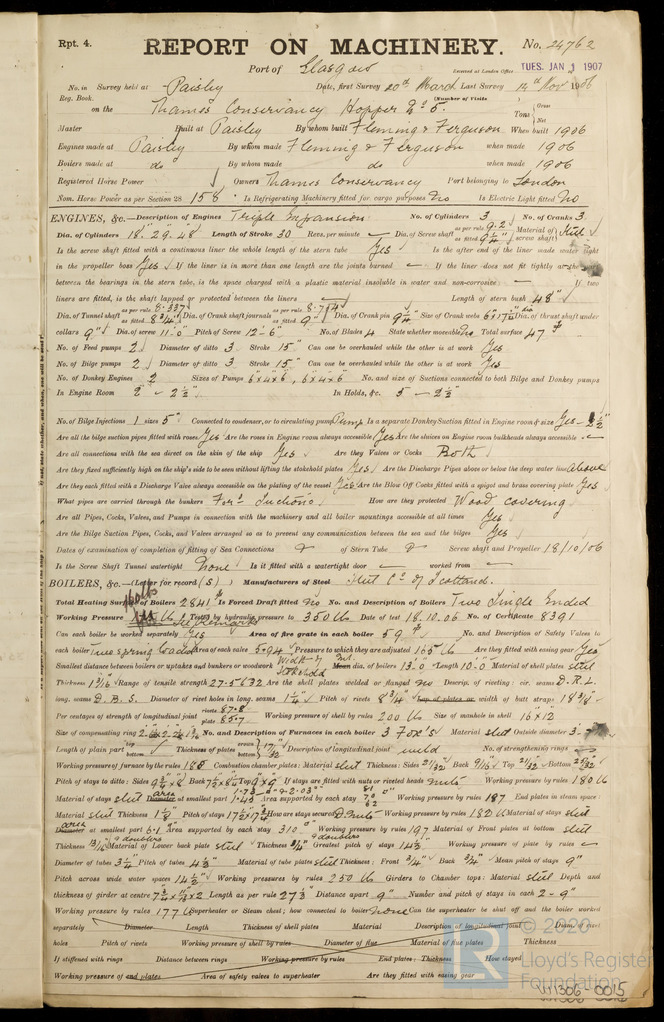 Rpt. 4.
REPORT ON MACHINERY.
No. 24762
Port of Glasgow
Received at London Office TUES. JAN 1 1907
No. in Survey held at Paisley Date, first Survey 20th March Last Survey 14th Nov 1906
Reg. Book. (Number of Visits
on the Thames Conservancy Hopper No 5. Tons Gross Net
Master Built at Paisley By whom built Fleming & Ferguson When built 1906
Engines made at Paisley By whom made Fleming & Ferguson when made 1906
Boilers made at do By whom made do when made 1906
Registered Horse Power Owners Thames Conservancy Port belonging to London
Nom. Horse Power as per Section 28 158 Is Refrigerating Machinery fitted for cargo purposes No Is Electric Light fitted No
ENGINES, &c.—Description of Engines Triple Expansion No. of Cylinders 3 No. of Cranks 3
Dia. of Cylinders 18" 29" 48" Length of Stroke 30 Revs. per minute Dia. of Screw shaft as per rule 9.2 as fitted 9¼" Material of screw shaft Steel
Is the screw shaft fitted with a continuous liner the whole length of the stern tube Yes Is the after end of the liner made water tight
in the propeller boss Yes If the liner is in more than one length are the joints burned If the liner does not fit tightly at the
between the bearings in the stern tube, is the space charged with a plastic material insoluble in water and non-corrosive If two
liners are fitted, is the shaft lapped or protected between the liners Length of stern bush 48"
Dia. of Tunnel shaft as per rule 8.337 as fitted 8¾" Dia. of Crank shaft journals as per rule 8.74 as fitted 9" Dia. of Crank pin 9¼" Size of Crank webs Dia. of thrust shaft under
collars 9" Dia. of screw 11-0" Pitch of Screw 12-6" No. of Blades 4 State whether moveable No Total surface 47
No. of Feed pumps 2 Diameter of ditto 3 Stroke 15" Can one be overhauled while the other is at work Yes
No. of Bilge pumps 2 Diameter of ditto 3 Stroke 15" Can one be overhauled while the other is at work Yes
No. of Donkey Engines 2 Sizes of Pumps 6"x4"x6", 6"x4"x6 No. and size of Suctions connected to both Bilge and Donkey pumps
In Engine Room 2 - 2½" In Holds, &c. 5 - 2½"
No. of Bilge Injections 1 sizes 5" Connected to condenser, or to circulating pump Pump Is a separate Donkey Suction fitted in Engine room & size Yes - 2½"
Are all the bilge suction pipes fitted with roses Yes Are the roses in Engine room always accessible Yes Are the sluices on Engine room bulkheads always accessible
Are all connections with the sea direct on the skin of the ship Yes Are they Valves or Cocks Both
Are they fixed sufficiently high on the ship's side to be seen without lifting the stokehold plates Yes Are the Discharge Pipes above or below the deep water line above
Are they each fitted with a Discharge Valve always accessible on the plating of the vessel Yes Are the Blow Off Cocks fitted with a spigot and brass covering plate Yes
What pipes are carried through the bunkers For'd Suctions How are they protected Wood covering
Are all Pipes, Cocks, Valves, and Pumps in connection with the machinery and all boiler mountings accessible at all times Yes
Are the Bilge Suction Pipes, Cocks, and Valves arranged so as to prevent any communication between the sea and the bilges Yes
Dates of examination of completion of fitting of Sea Connections of Stern Tube Screw shaft and Propeller 18/10/06
Is the Screw Shaft Tunnel watertight None Is it fitted with a watertight door worked from
BOILERS, &c.—(Letter for record (S) ) Manufacturers of Steel Steel Co of Scotland.
Total Heating Surface of Boilers 2841 Is Forced Draft fitted No No. and Description of Boilers Two Single Ended
Working Pressure Tested by hydraulic pressure to 350 lb Date of test 18.10.06 No. of Certificate 8391
Can each boiler be worked separately Yes Area of fire grate in each boiler 59 No. and Description of Safety Valves to
each boiler Two Spring Loaded Area of each valve 5.94 Pressure to which they are adjusted 165 lb Are they fitted with easing gear Yes
Smallest distance between boilers or uptakes and bunkers or woodwork Width of Stokehold Mean dia. of boilers 13-0 Length 10-0 Material of shell plates steel
Thickness 1 3/16 Range of tensile strength 27.5-32 Are the shell plates welded or flanged No Descrip. of riveting: cir. seams D.R.L.
long. seams D.B.S. Diameter of rivet holes in long. seams 1¼" Pitch of rivets 8¾" Lap of plates or width of butt straps 18⅜"
Per centages of strength of longitudinal joint rivets 87.8 plate 85.7 Working pressure of shell by rules 200 lb Size of manhole in shell 16"x12"
Size of compensating ring No. and Description of Furnaces in each boiler 3 Fox's Material steel Outside diameter 3
Length of plain part top bottom Thickness of plates crown bottom 17/32 Description of longitudinal joint weld No. of strengthening rings
Working pressure of furnace by the rules 185 Combustion chamber plates: Material steel Thickness: Sides 21/32 Back 9/16 Top 21/32 Bottom 21/32
Pitch of stays to ditto: Sides 9¾"x8 Back 7¾"x8¾" Top 9"x9" If stays are fitted with nuts or riveted heads nuts Working pressure by rules 180 lb
Material of stays steel Diameter area at smallest part 1.45 Area supported by each stay Working pressure by rules 187 End plates in steam space:
Material steel Thickness 1⅛" Pitch of stays How are stays secured D. nuts Working pressure by rules 182 lb Material of stays steel
Diameter area at smallest part 6.1 Area supported by each stay 310 Working pressure by rules 197 Material of Front plates at bottom steel
Thickness 13/16 Material of Lower back plate steel Thickness ¾" Greatest pitch of stays 14½" Working pressure of plate by rules
Diameter of tubes 3¼" Pitch of tubes 4½" Material of tube plates steel Thickness: Front ¾" Back ¾" Mean pitch of stays 9"
Pitch across wide water spaces 14½" Working pressures by rules 250 lb Girders to Chamber tops: Material steel Depth and
thickness of girder at centre Length as per rule 27⅜" Distance apart 9" Number and pitch of stays in each 2 - 9"
Working pressure by rules 177 lb Superheater or Steam chest; how connected to boiler None Can the superheater be shut off and the boiler worked
separately Diameter Length Thickness of shell plates Material Description of longitudinal joint Diam. of rivet
holes Pitch of rivets Working pressure of shell by rules Diameter of flue Material of flue plates Thickness
If stiffened with rings Distance between rings Working pressure by rules End plates: Thickness How stayed
Working pressure of end plates Area of safety valves to superheater Are they fitted with easing gear
© 2020
Lloyd's Register
Foundation
W1306-0015